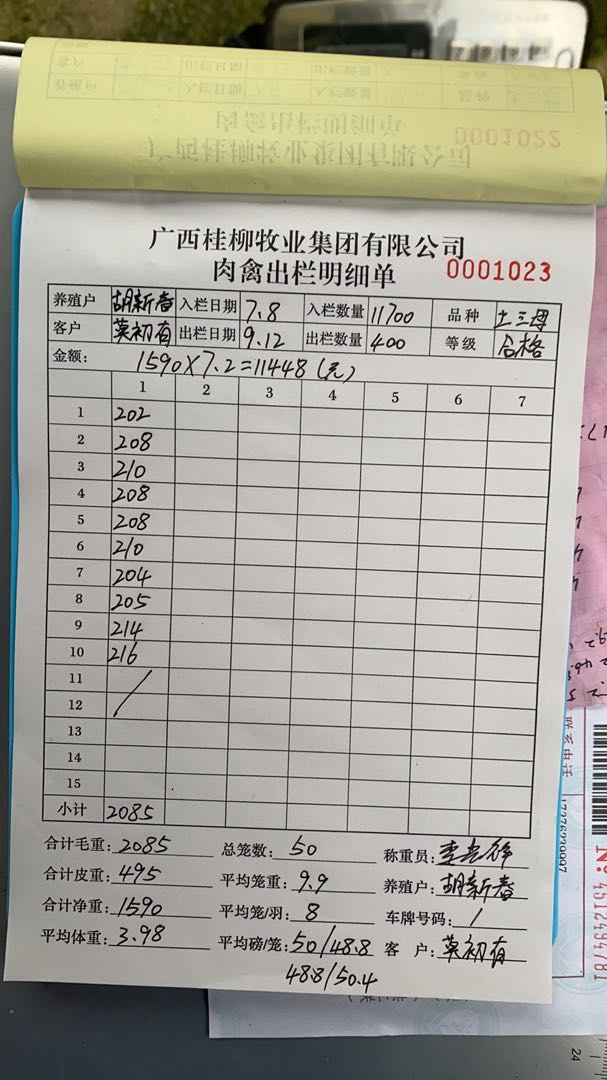 广西桂柳牧业集团有限公司
肉禽出栏明细单 0001022
广西桂柳牧业集团有限公司
肉禽出栏明细单 0001023
养殖户 胡新春 入栏日期 7.8 入栏数量 11700 品种 土三号
客户 莫初有 出栏日期 9.12 出栏数量 400 等级 合格
金额: 1590×7.2=11448(元)
1 2 3 4 5 6 7
1 202
2 208
3 210
4 208
5 208
6 210
7 204
8 205
9 214
10 216
11 /
12
13
14
15
小计 2085
合计毛重: 2085 总笼数: 50 称重员:
合计皮重: 495 平均笼重: 9.9 养殖户: 胡新春
合计净重: 1590 平均笼/羽: 8 车牌号码: /
平均体重: 3.98 平均磅/笼: 50/48.8 客户: 莫初有
48.8/50.4
联系电话
No: 4512494781
24